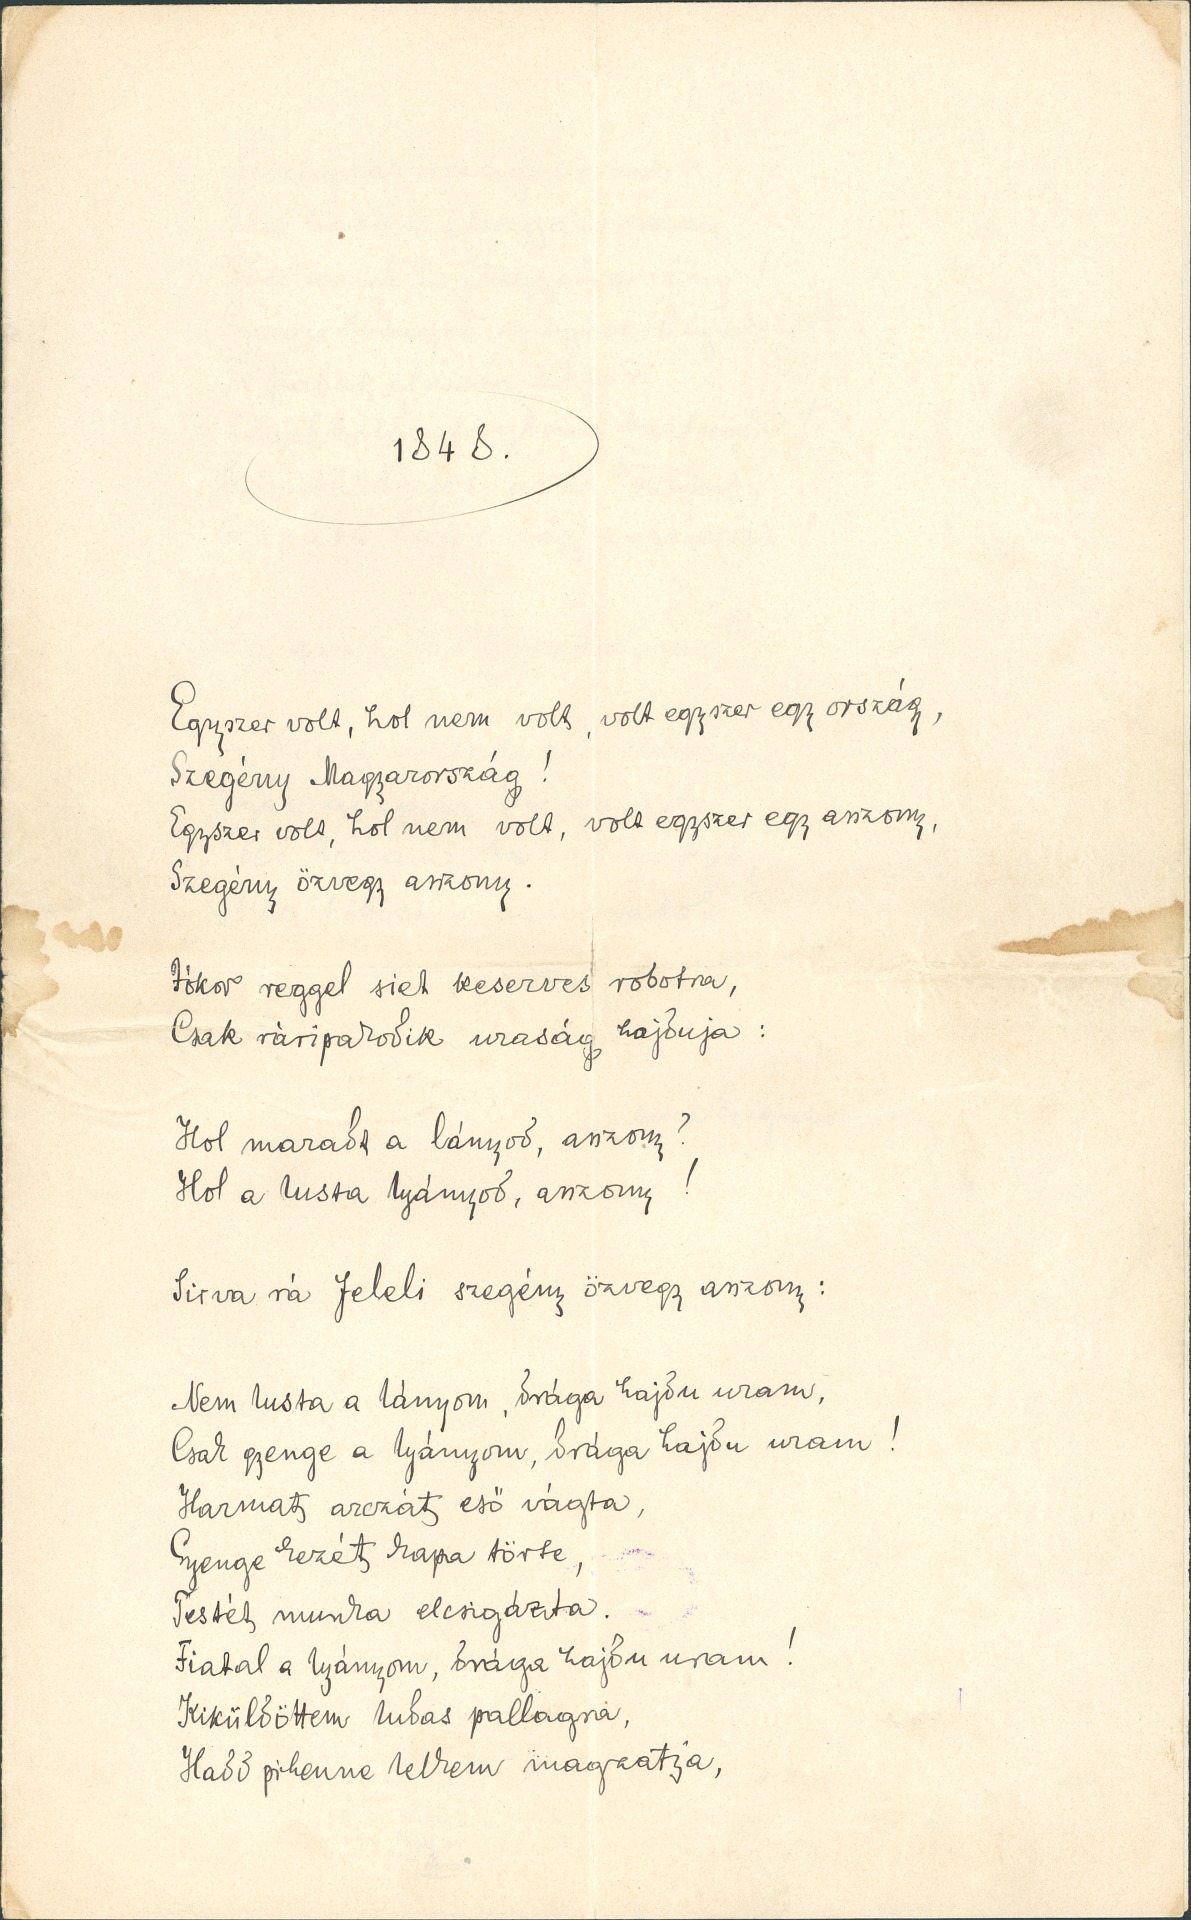 1848.
Egyszer volt, hol nem volt, volt egyszer egy ország,
Szegény Magyarország!
Egyszer volt, hol nem volt, volt egyszer egy asszony,
Szegény özvegy asszony.
Jókor reggel siet keserves robotra,
Csak ráripakodik uraság hajduja:
Hol maradt a lányod, asszony?
Hol a lusta lyányod, asszony!
Sirva rá feleli szegény özvegy asszony:
Nem lusta a lányom, drága hajdu uram,
Csak gyenge a lyányom, drága hajdu uram!
Harmat arczát eső vágta,
Gyenge kezét kapa törte,
Testét munka elcsigázta.
Fiatal a lyányom, drága hajdu uram!
Kiküldöttem ludas pallagra,
Hadd pihenne lelkem magzatja,